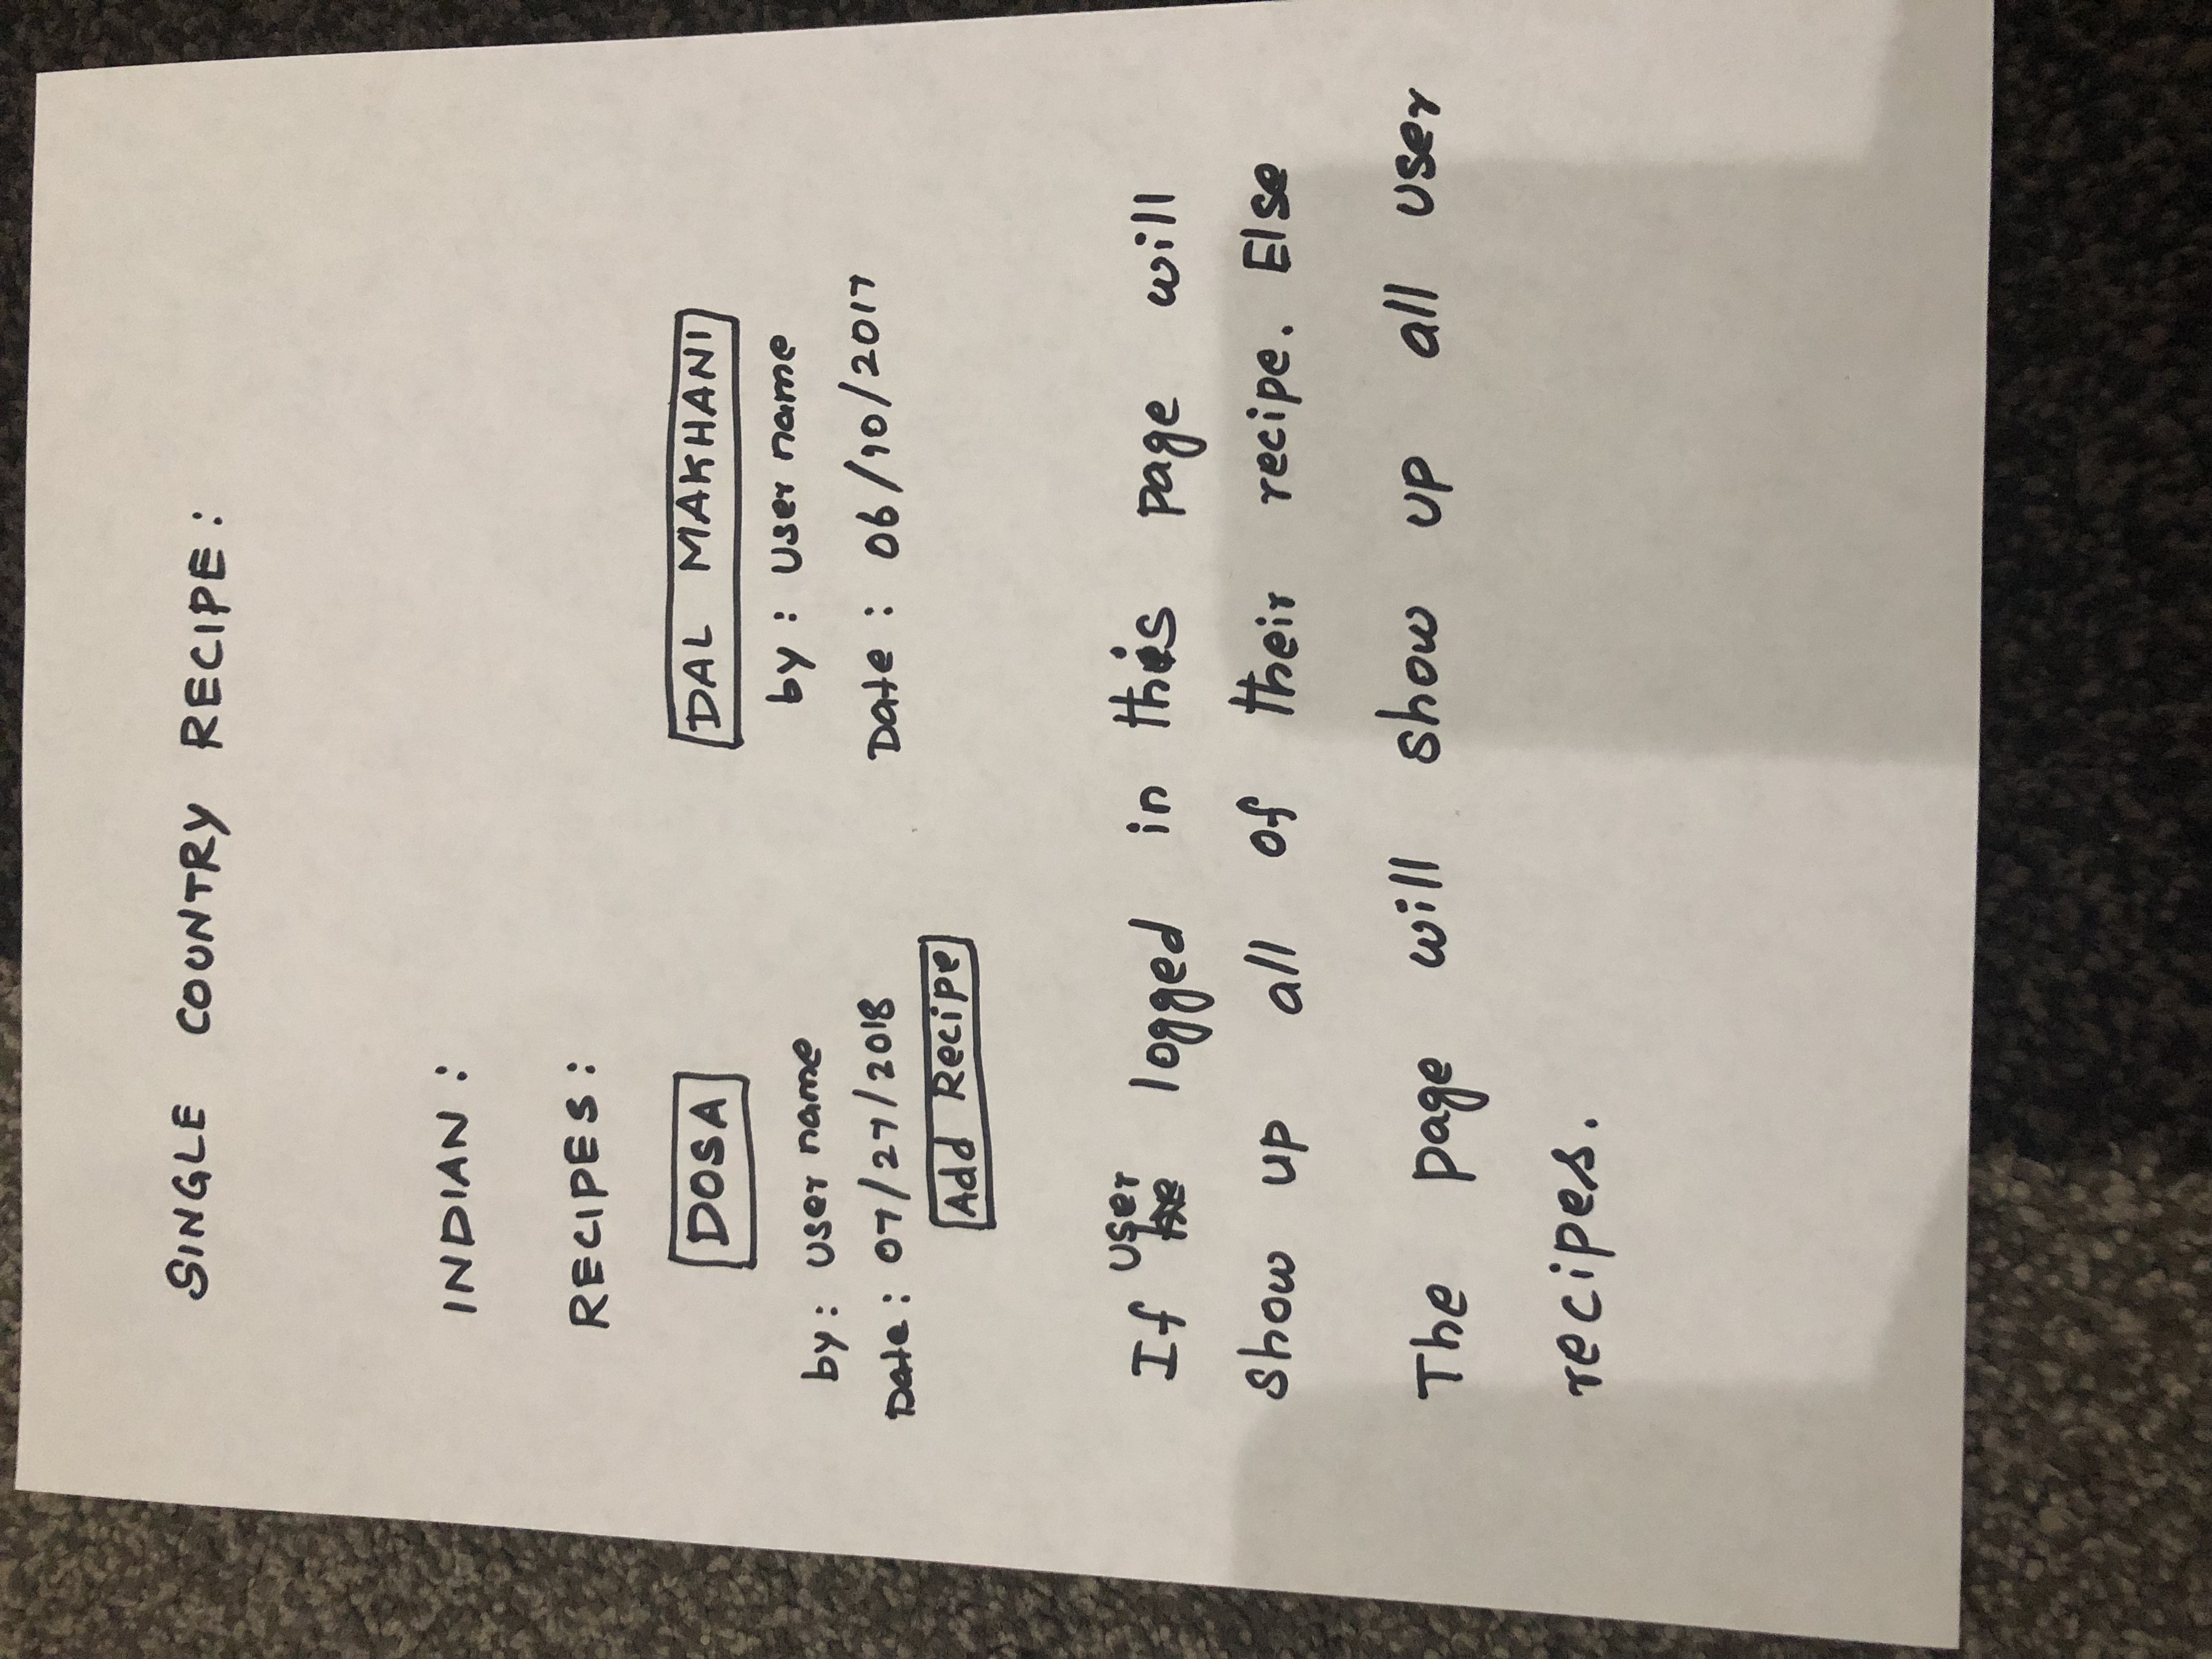 SINGLE COUNTRY RECIPE:
INDIAN:
RECIPES:
DOSA
by: user name
Date: 07/27/2018
DAL MAKHANI
by: User name
Date: 06/10/2017
Add Recipe
If user logged in this page will
show up all of their recipe. Else
The page will show up all user
recipes.